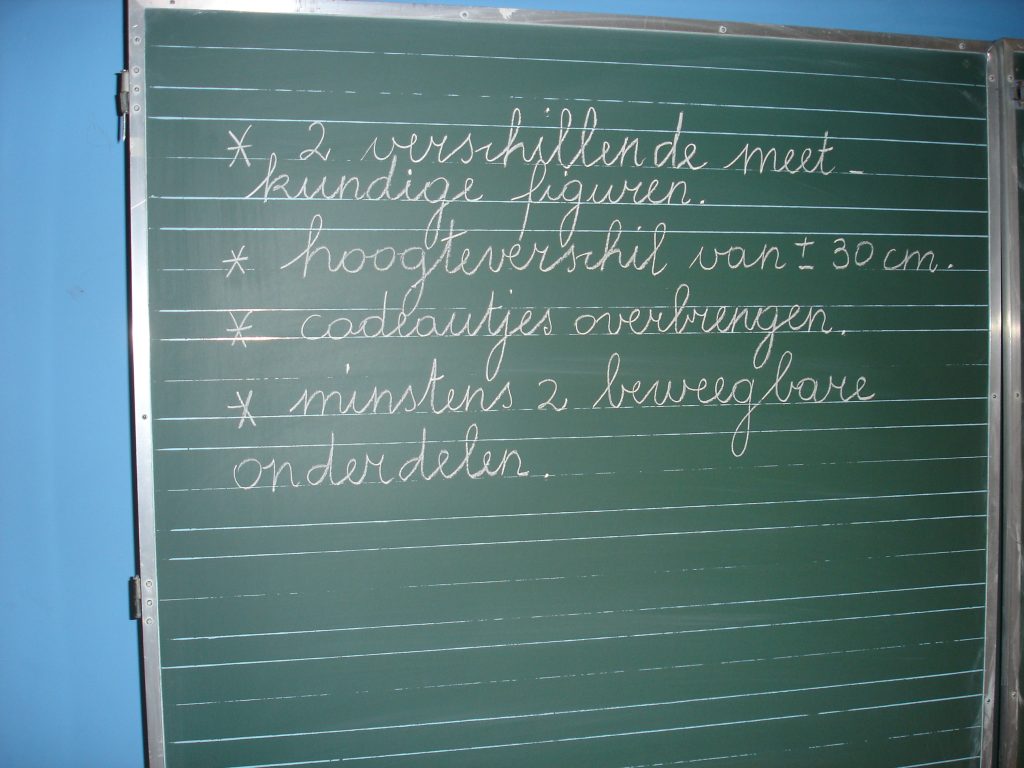 * 2 verschillende meet-
kundige figuren.
* hoogteverschil van ± 30 cm.
* cadeautjes overbrengen.
* minstens 2 beweegbare
onderdelen.